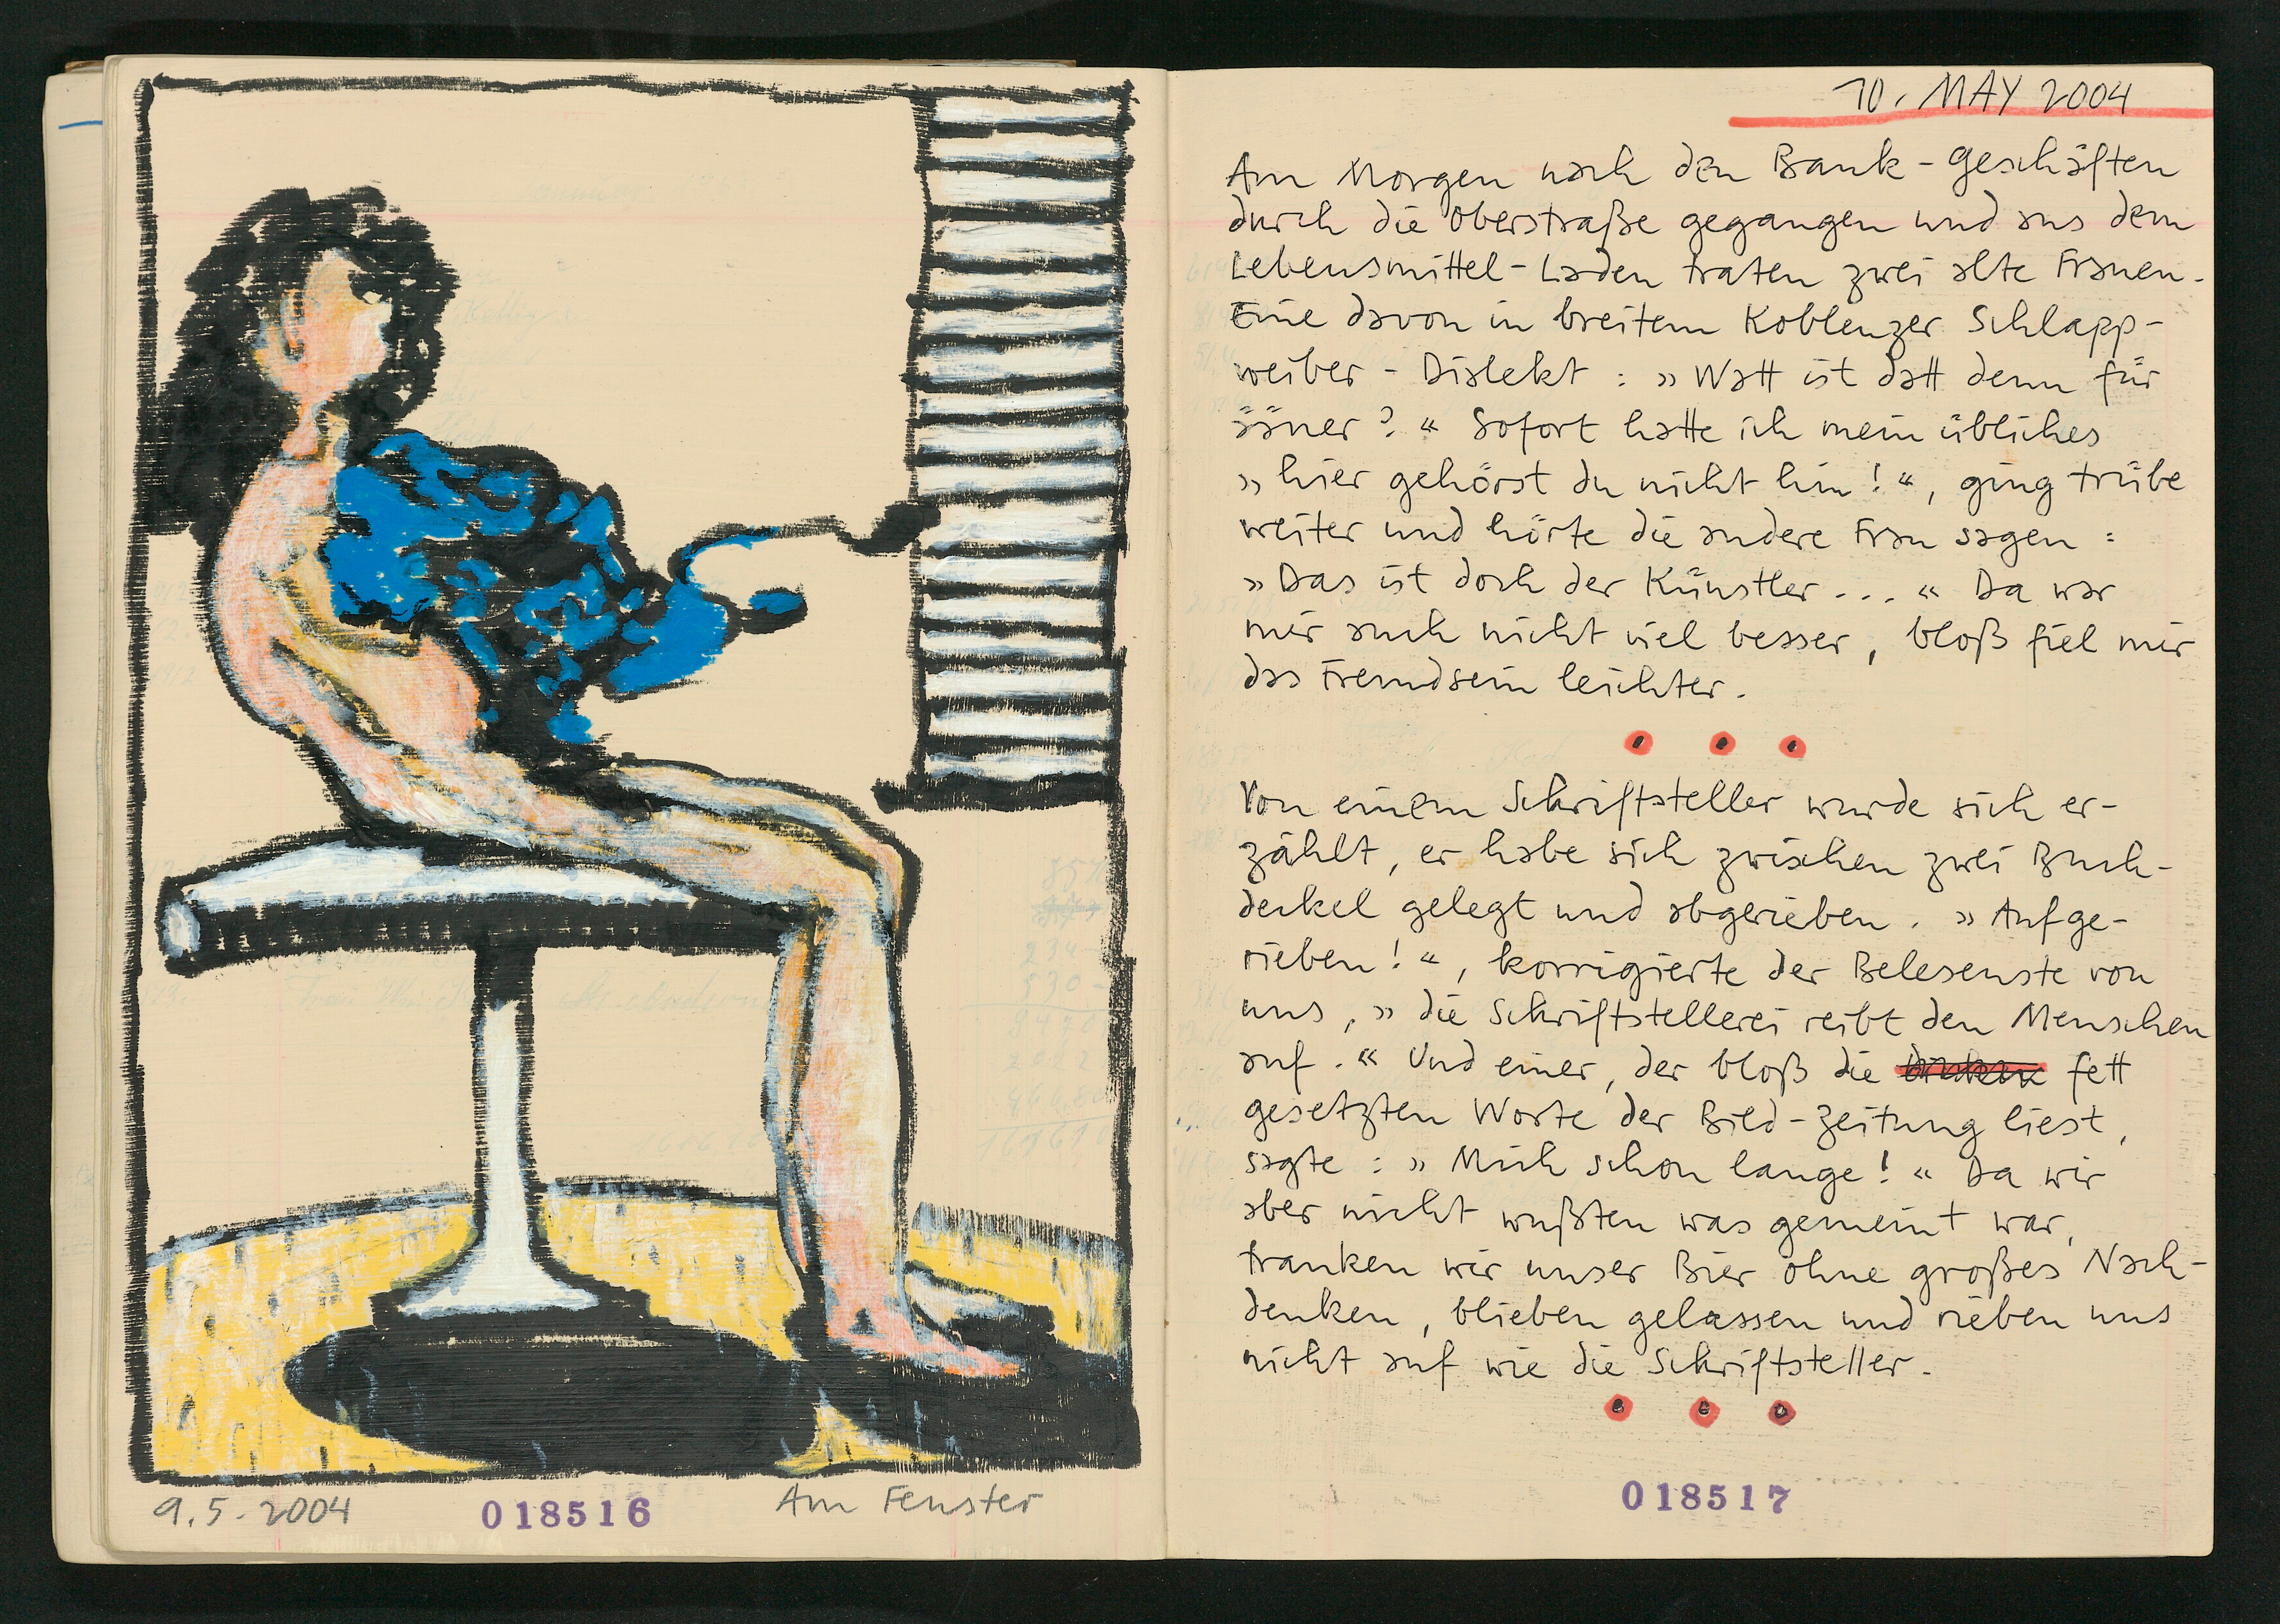 9.5.2004
018516
Am Fenster
10. MAY 2004
Am Morgen nach den Bank-Geschäften
durch die Oberstraße gegangen und aus dem
Lebensmittel-Laden traten zwei alte Frauen.
Eine davon in breitem Koblenzer Schlapp-
weiber-Dialekt: »Watt ist datt denn für
ääner?« Sofort hatte ich mein übliches
»hier gehörst du nicht hin!«, ging trübe
weiter und hörte die andere Frau sagen:
»Das ist doch der Künstler...« Da war
mir auch nicht viel besser, bloß fiel mir
das Fremdsein leichter.
Von einem Schriftsteller wurde sich er-
zählt, er habe sich zwischen zwei Buch-
deckel gelegt und abgerieben. »Aufge-
rieben!«, korrigierte der Belesenste von
uns, »die Schriftstellerei reibt den Menschen
auf.« Und einer, der bloß die fett
gesetzten Worte der Bild-Zeitung liest,
sagte: »Mich schon lange!« Da wir
aber nicht wußten was gemeint war,
tranken wir unser Bier ohne großes Nach-
denken, blieben gelassen und rieben uns
nicht auf wie die Schriftsteller.
018517